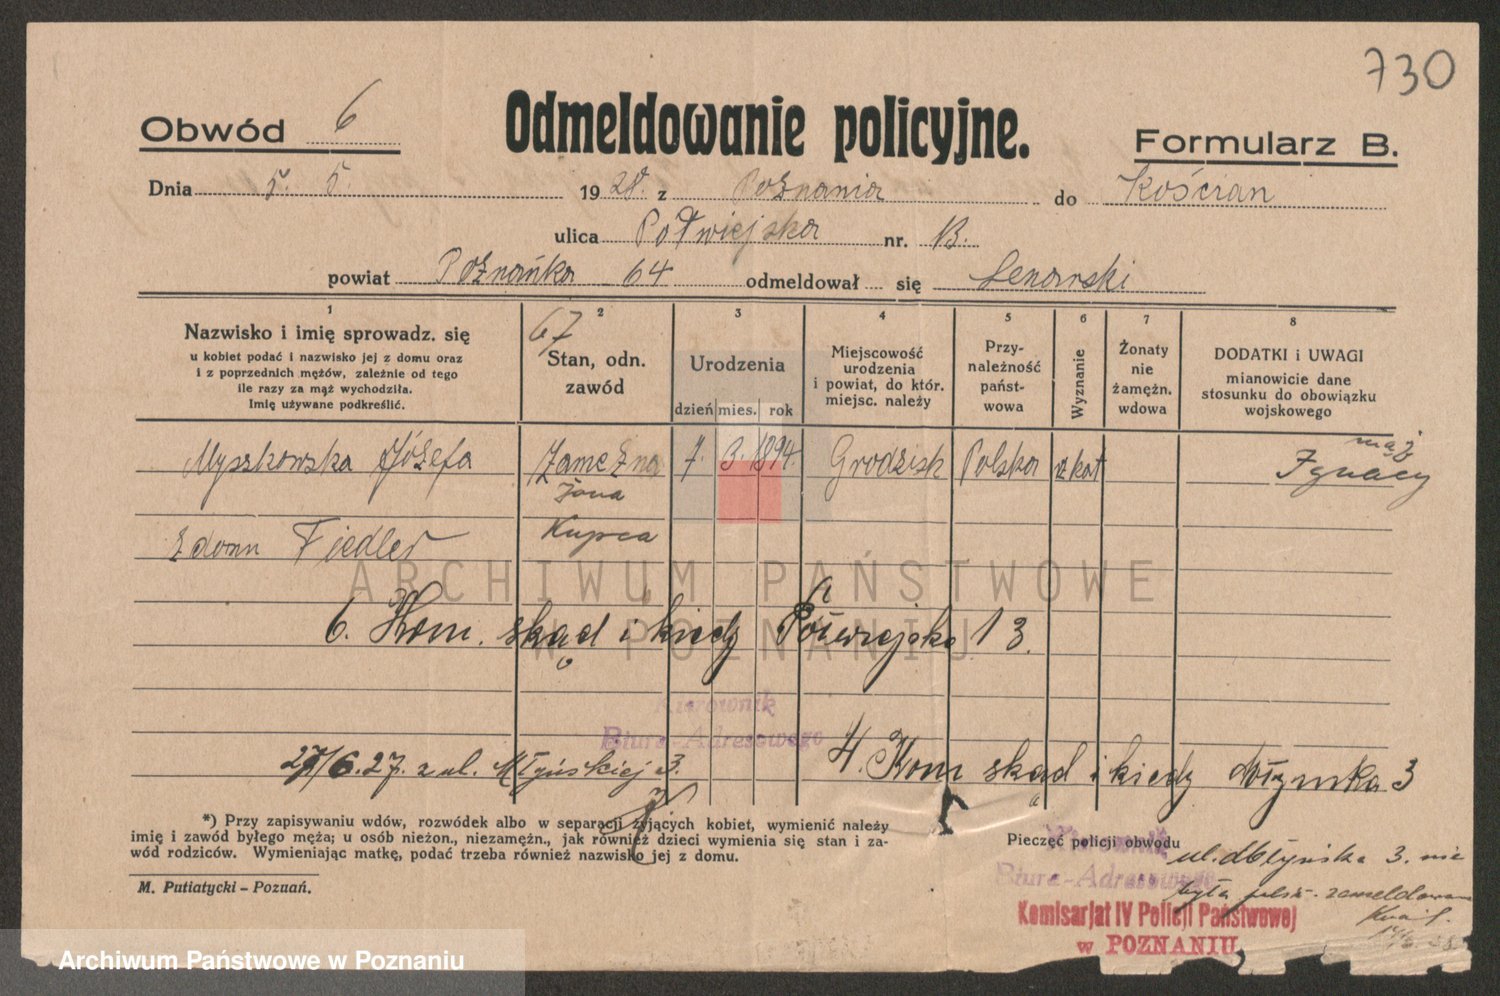 730
Obwód 6
Odmeldowanie policyjne.
Formularz B.
Dnia 5. 5. 1928. z Poznania do Kościan
ulica Półwiejska nr. 13.
powiat Poznańka 64 odmeldował się Lenarski
1 2 3 4 5 6 7 8
Nazwisko i imię sprowadz. się
u kobiet podać i nazwisko jej z domu oraz
i z poprzednich mężów, zależnie od tego
ile razy za mąż wychodziła.
Imię używane podkreślić.
67
Stan, odn.
zawód
Urodzenia
dzień mies. rok
Miejscowość
urodzenia
i powiat, do któr.
miejsc. należy
Przy-
należność
państ-
wowa
Wyznanie
Żonaty
nie
żamężn.
wdowa
DODATKI i UWAGI
mianowicie dane
stosunku do obowiązku
wojskowego
Myszkowska Józefa Zamężna 7. 3. 1894. Grodzisk Polska rz kat
mąż
Ignacy
żona
Kupca
z dom Fiedler
ARCHIWUM PAŃSTWOWE
W POZNANIU
6. Kom. skąd i kiedy Półwiejska 13.
Kierownik
Biura-Adresowego
27/6.27. z ul. Młyńskiej 3.
4. Kom skąd i kiedy Młynska 3
*) Przy zapisywaniu wdów, rozwódek albo w separacji żyjących kobiet, wymienić należy
imię i zawód byłego męża; u osób nieżon., niezamężn., jak również dzieci wymienia się stan i za-
wód rodziców. Wymieniając matkę, podać trzeba również nazwisko jej z domu.
M. Putiatycki – Poznań.
Pieczęć policji obwodu
Kierownik
Biura-Adresowego
ul. Młyńska 3. nie
była polic. zameldowana
Komisarjat IV Policji Państwowej
w POZNANIU
Archiwum Państwowe w Poznaniu